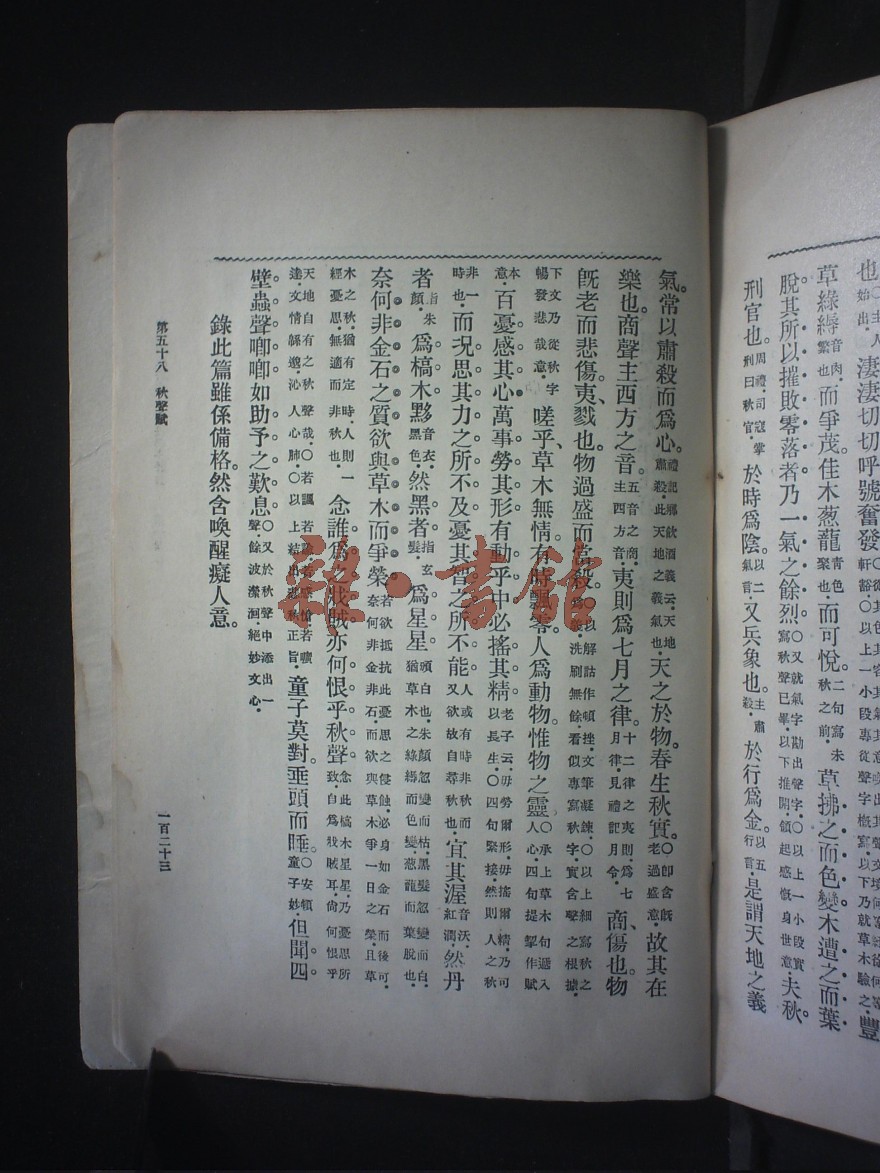 也○主人始出・淒淒切切呼號奮發○從其色其容其氣其意喚出其聲文境何等紆徐何等軒豁・○以上一小段專從聲字概寫・以下乃就草木驗之・豐
草綠縟音肉・繁也・而爭茂佳木葱龍青色・聚也・而可悅。二句寫未秋之前・草拂之而色變木遭之而葉
脫其所以摧敗零落者乃一氣之餘烈○又就氣字勘出聲字・○以上一小段實寫秋聲已畢・以下推開・領起感慨身世意・夫秋
刑官也。周禮・司寇掌刑曰秋官・於時爲陰。以二氣言・又兵象也。主肅殺・於行爲金。以五行言・是謂天地之義
氣。常以肅殺而爲心。禮記鄉飲酒義云・天地肅殺・此天地之義氣也・天之於物。春生秋實。○卽含旣老過盛意・故其在
樂也。商聲主西方之音。五音之商・主西方音・夷則爲七月之律。十二律之夷則・爲七月律・見禮記月令・商、傷也。物
旣老而悲傷。夷、戮也。物過盛而當殺。○以解詁作頓挫・文筆凝鍊・○以上細寫秋之爲義・洗刷無餘・看似專寫秋字・實含聲之根據・
下文乃從秋字暢發悲哉意・嗟乎、草木無情。有時飄零。人爲動物。惟物之靈○承上草木句遞入人心・四句提挈作賦
本意・百憂感其心。萬事勞其形。有動乎中。必搖其精。老子云・毋勞爾形・毋搖爾精・乃可以長生・○四句緊接・然則人之秋
非一時也・而況思其力之所不及。憂其智之所不能人或有時非秋而又欲故自尋秋也・宜其渥音沃・紅潤・然丹
者指朱顏・爲槁木。黟音衣・黑色・然黑者指玄髮・爲星星。頭白也・朱顏忽變而枯・黑髮忽變而白・猶草木之綠縟而色變・葱龍而葉脫也・
奈何非金石之質。欲與草木而爭榮。若欲抵抗此憂思之侵蝕・必身如金石而後可・奈何非金非石・而欲與草木爭一日之榮・且草
木之秋・猶有定時・人則一經憂思・無適而非秋也・念誰爲之戕賊。亦何恨乎秋聲念此槁木星星・乃憂思所致・自爲戕賊耳・尙何恨乎
天地自有之秋聲哉・○若諷若若感愴若曠達・文情緜邈・沁人心肺・○以上結出悲秋正旨・童子莫對。垂頭而睡。○安頓童子妙・但聞四
壁。蟲聲喞喞。如助予之歎息。○又於秋聲中添出一聲・餘波瀠洄・絕妙文心・
錄此篇雖係備格。然含喚醒癡人意。
第五十八 秋聲賦
一百二十三
雜・書館